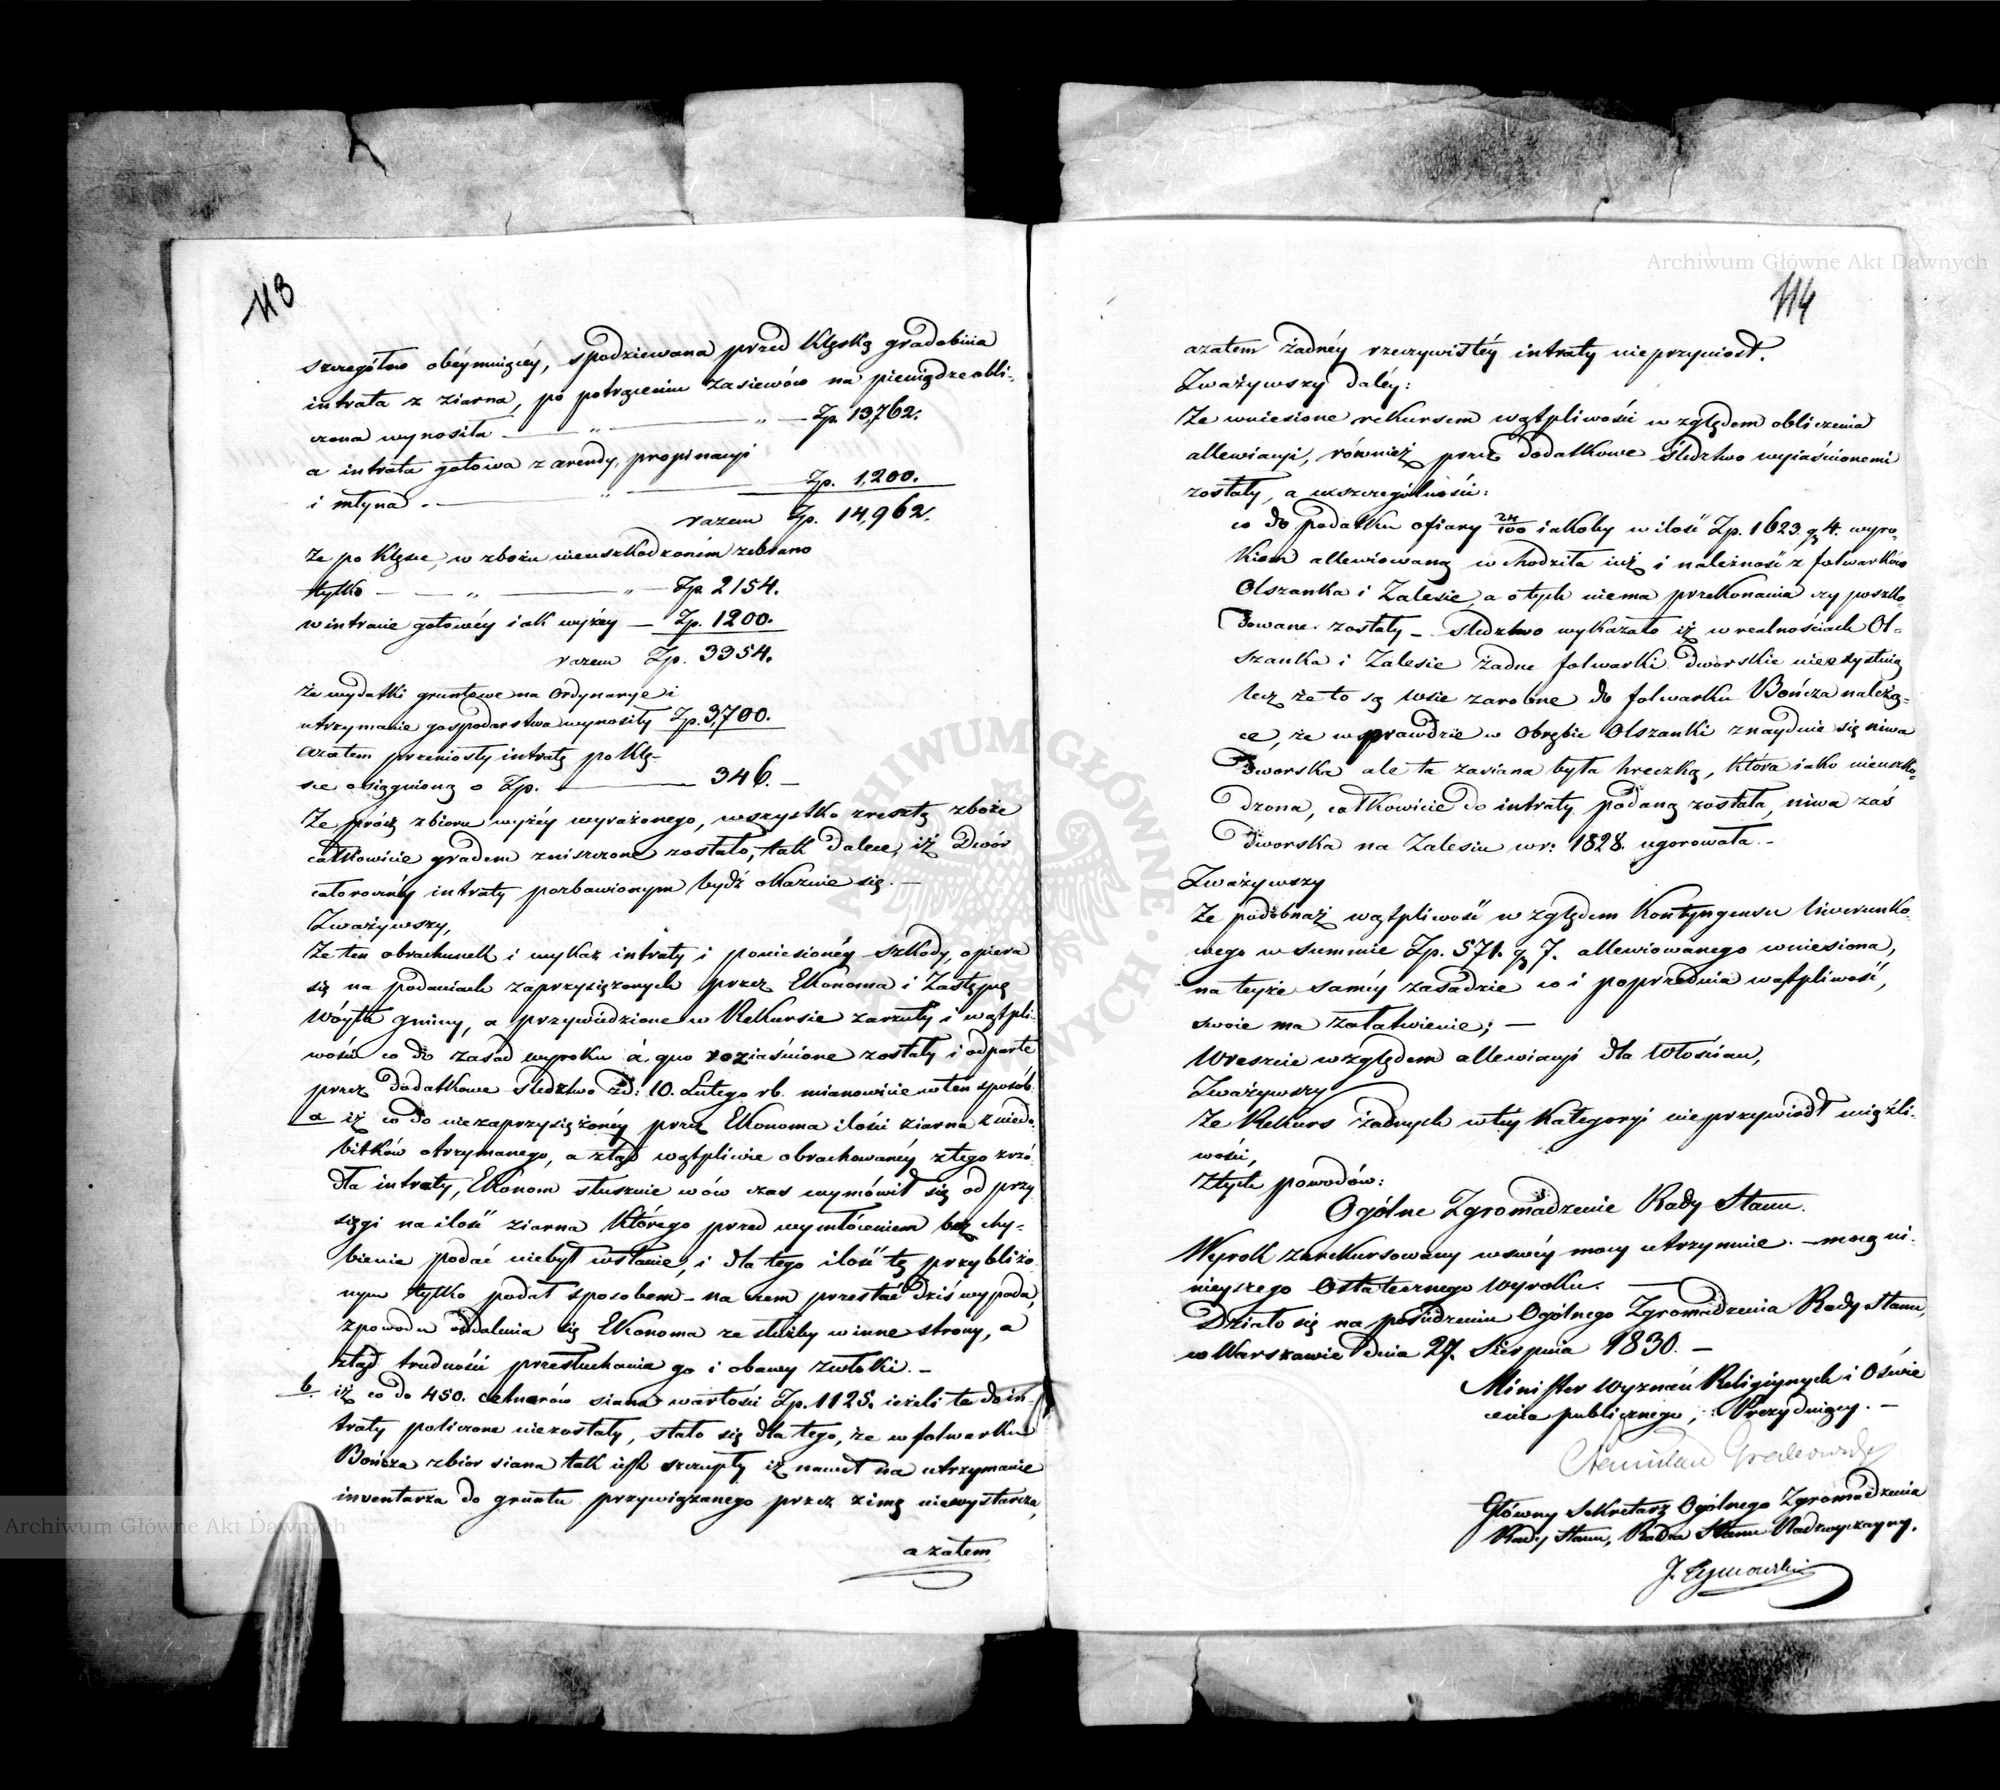 113
szczegółow obeymuiącéy, spodziewana przed klęską gradobicia
intrata z ziarna, po potrąceniu zasiewów na pieniądze obli-
czona wynosiła — „ — „ — Zp. 13,762.
a intrata gotowa z arendy, propinacyi
i młyna. — „ — Zp. 1,200.
razem Zp. 14,962.
że po klęsce, w zbożu nieuszkodzoném zebrano
tylko — — „ — „ — Zp. 2154.
w intracie gotowéy iak wyżéy — Zp. 1200.
razem Zp. 3354.
że wydatki gruntowe na Ordynarye i
utrzymanie gospodarstwa wynosiły Zp. 3,700.
azatem przeniosły intratę po klę-
sce osiągnioną o Zp. — 346. —
Że prócz zbioru wyżéy wyrażonego, wszystko zresztą zboże
całkowicie gradem zniszczone zostało, tak dalece, iż Dwór
całorocznéy intraty pozbawionym bydź okazuie się. —
Zważywszy,
Że ten obrachunek i wykaz intraty i poniesionéy szkody, opiera
się na podaniach zaprzysiężonych przez Ekonoma i Zastępcę
Wóyta gminy, a przywiedzione w Rekursie zarzuty i wątpli-
wości co do zasad wyroku à quo roziaśnione zostały i odparte
przez dodatkowe śledztwo z d: 10. Lutego rb. mianowicie w ten sposób
a iż co do niezaprzysiężonéy przez Ekonoma ilości ziarna z niedo-
bitków otrzymanego, a ztąd wątpliwie obrachowanéy z tego źró-
dła intraty, Ekonom słusznie wówczas wymówił się od przy
sięgi na ilość ziarna którego przed wymłóceniem bez chy-
bienia podać niebył wstanie, i dla tego ilość tę przybliżo-
nym tylko podał sposobem — na czem przestać dziś wypada,
z powodu oddalenia się Ekonoma ze służby w inne strony, a
ztąd trudności przesłuchania go i obawy zwłoki. —
b. iż co do 450. cetnarów siana wartości Zp. 1125. ieżeli te do in-
traty policzone niezostały, stało się dla tego, że w folwarku
Bończa zbiór siana tak iest szczupły iż nawet na utrzymanie
inwentarza do gruntu przywiązanego przez zimę niewystarcza,
azatem
114
azatem żadnéy rzeczywistéy intraty nieprzyniosł.
Zważywszy daléy:
Że wniesione rekursem wątpliwości względem obliczenia
allewiacyi, również przez dodatkowe śledztwo wyiaśnionemi
zostały, a w szczególności:
co do podatku ofiary 24/100 iakoby w ilość Zp. 1623. g. 4. wyro-
kiem allewiowaną wchodziła iuż i należność z folwarków
Olszanka i Zalesie, a o tych niema przekonania czy poszko-
dowane zostały — śledztwo wykazało iż w realnościach Ol-
szanka i Zalesie żadne folwarki dworskie nieexystuią
lecz że to są wsie zarobne do folwarku Bończa należą-
ce, że wprawdzie w obrębie Olszanki znayduie się niwa
Dworska ale ta zasiana była hreczką, która iako nieuszko-
dzona, całkowicie do intraty podaną została, niwa zaś
dworska na Zalesiu w r: 1828. ugorowała. —
Zważywszy
Że podobnaż wątpliwość względem Kontyngensu liwerunko-
wego w summie Zp. 571. g. 7. allewiowanego wniesiona,
na teyże saméy zasadzie co i poprzednia wątpliwość,
swoie ma załatwienie; —
Wreszcie względem allewiacyi dla Włościan,
Zważywszy
Że Rekurs żadnych w téy kategoryi nieprzywiódł wątpli-
wości,
Z tych powodów:
Ogólne Zgromadzenie Rady Stanu.
Wyrok zarekursowany w swéy mocy utrzymuie. — mocą ni-
nieyszego Ostatecznego Wyroku. —
Działo się na posiedzeniu Ogólnego Zgromadzenia Rady Stanu,
w Warszawie dnia 27. Sierpnia 1830. —
Minister Wyznań Religiynych i Oświe
cenia publicznego, Prezyduiący. —
Stanisław Grabowski
Główny Sekretarz Ogólnego Zgromadzenia
Rady Stanu, Radca Stanu Nadzwyczayny.
J. Tymowski
Archiwum Główne Akt Dawnych
Archiwum Główne Akt Dawnych
ARCHIWUM GŁÓWNE AKT DAWNYCH